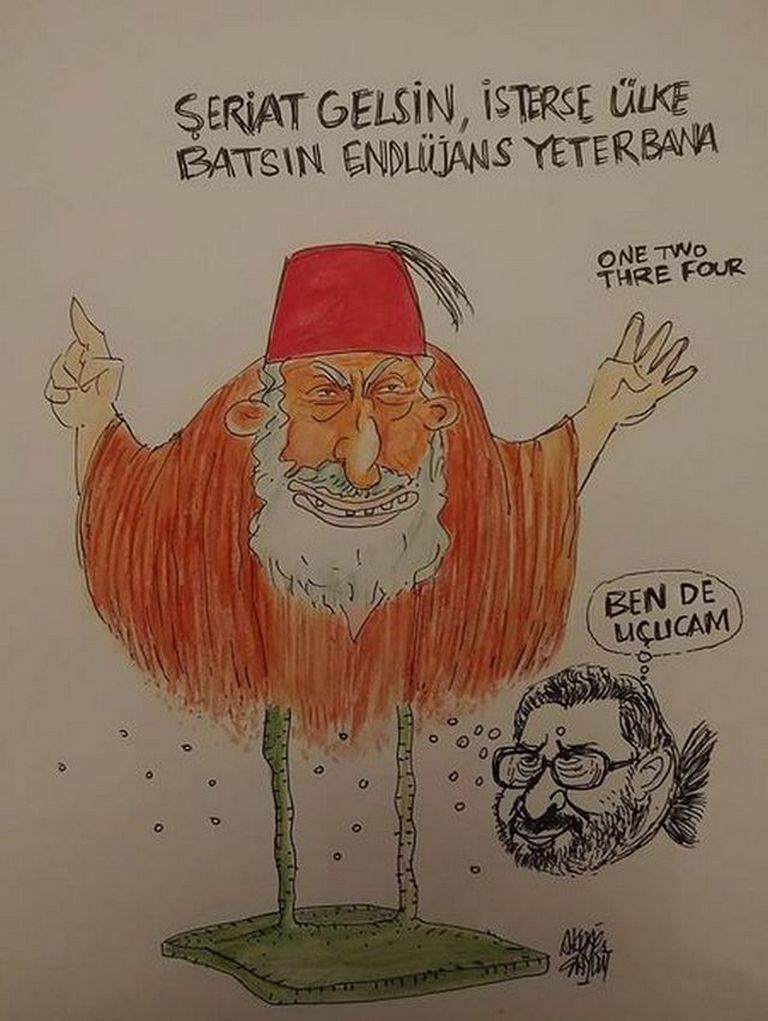 ŞERİAT GELSİN, İSTERSE ÜLKE
BATSIN ENDLÜJANS YETERBANA
ONE TWO
THRE FOUR
BEN DE
UÇUCAM